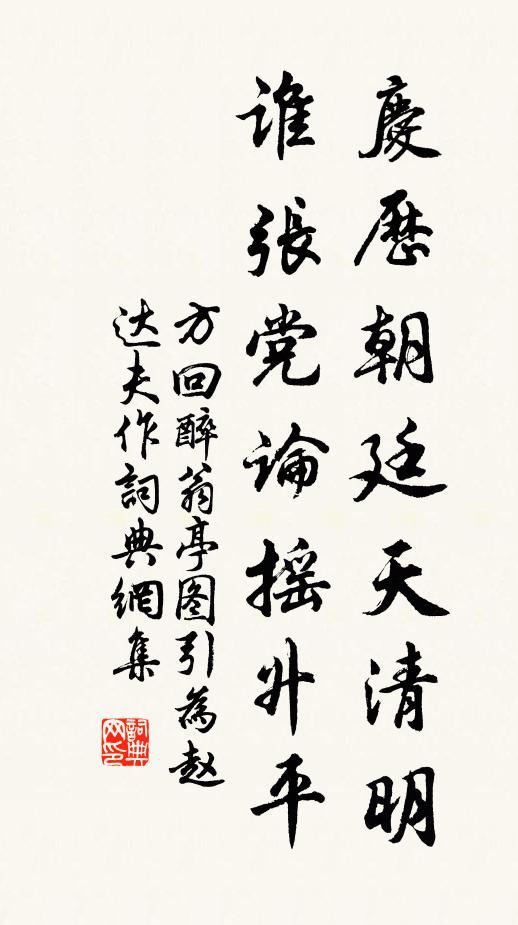 慶歷朝廷天清明
誰張党論搖升平
方回醉翁亭图引為赵
达夫作詞典網集
詞典網印